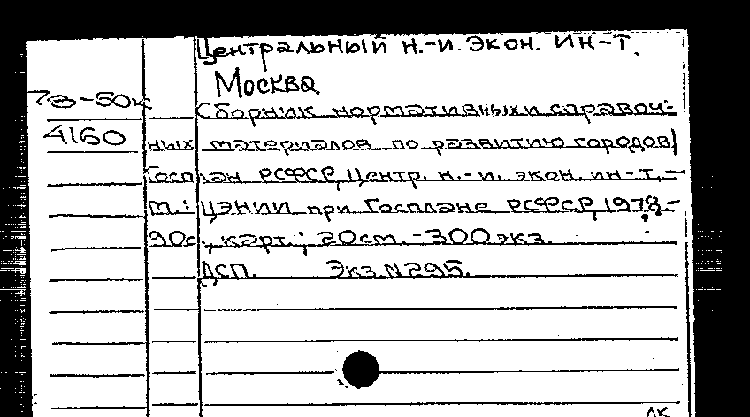 Центральный н.-и. экон. ин-т.
Москва
78-50к
Сборник нормативных и справоч-
4160
ных материалов по развитию городов/
Госплан РСФСР, Центр. н.-и. экон. ин-т.-
М.: ЦЭНИИ при Госплане РСФСР, 1978.-
90с., карт.; 20см. -300экз.
ДСП. Экз.N295.